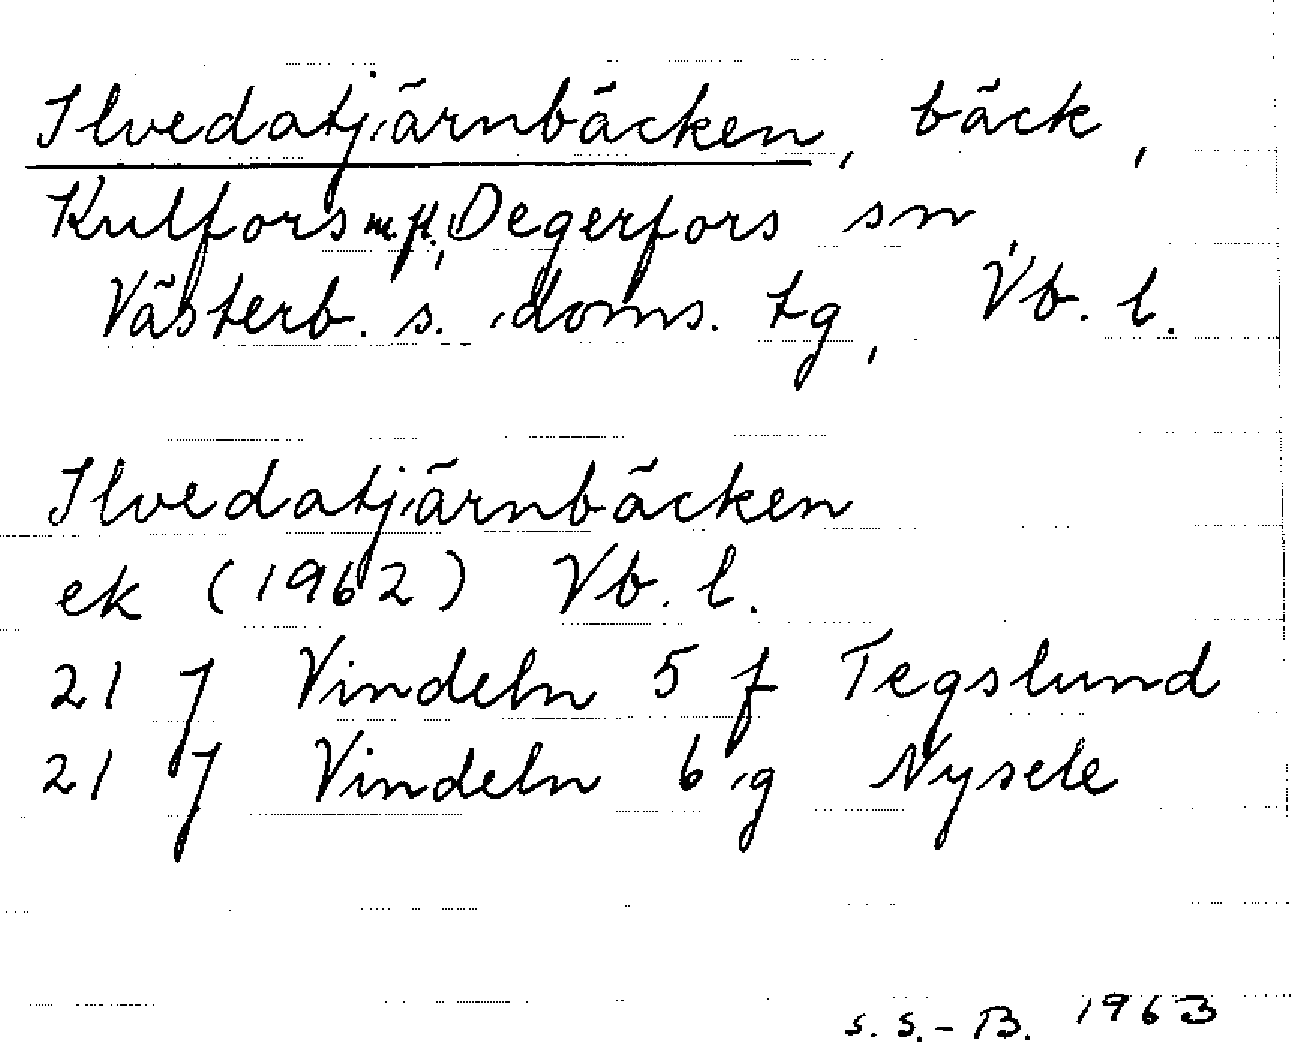 Ilvedatjärnbäcken, bäck,
Kulfors m.fl., Degerfors sn,
Västerb. s. doms. tg, Vb. l.
Ilvedatjärnbäcken
ek (1962) Vb. l.
21 J Vindeln 5 f Tegslund
21 J Vindeln 6 g Nysele
S.S.-B. 1963